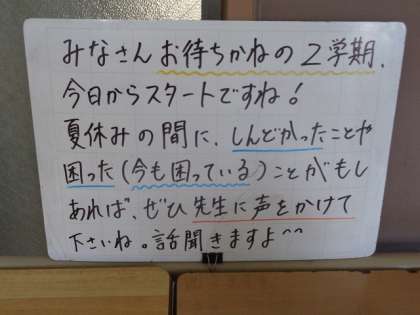 みなさんお待ちかねの2学期、
今日からスタートですね!
夏休みの間に、しんどかったことや
困った(今も困っている)ことがもし
あれば、ぜひ先生に声をかけて
下さいね。話聞きますよ^^